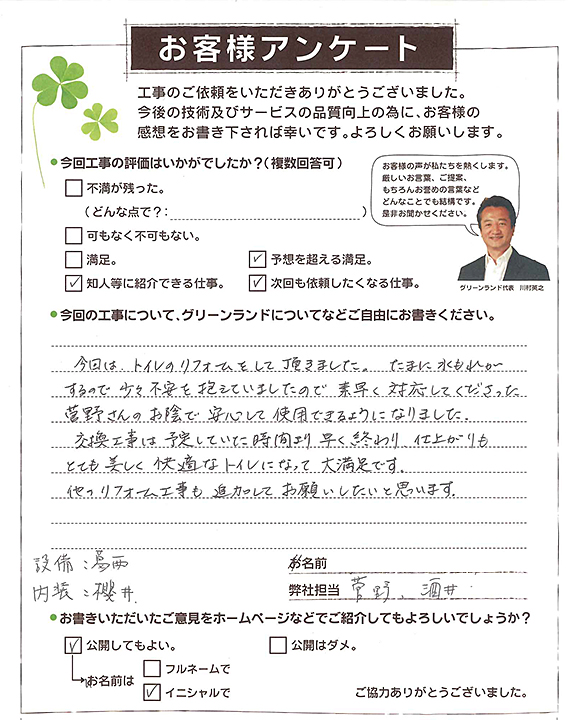 お客様アンケート
工事のご依頼をいただきありがとうございました。
今後の技術及びサービスの品質向上の為に、お客様の
感想をお書き下されば幸いです。よろしくお願いします。
●今回工事の評価はいかがでしたか?(複数回答可)
不満が残った。
(どんな点で?: )
可もなく不可もない。
満足。
✓ 予想を超える満足。
✓ 知人等に紹介できる仕事。
✓ 次回も依頼したくなる仕事。
お客様の声が私たちを熱くします。
厳しいお言葉、ご提案、
もちろんお誉めの言葉など
どんなことでも結構です。
是非お聞かせください。
グリーンランド代表 川村英之
●今回の工事について、グリーンランドについてなどご自由にお書きください。
今回は、トイレのリフォームをして頂きました。たまに水もれが
するので少々不安を抱えていましたので素早く対応してくださった
菅野さんのお陰で安心して使用できるようになりました。
交換工事は予定していた時間より早く終わり、仕上がりも
とても美しく快適なトイレになって大満足です。
他のリフォーム工事も追加してお願いしたいと思います。
設備:葛西
内装:櫻井
お名前
弊社担当 菅野、酒井
●お書きいただいたご意見をホームページなどでご紹介してもよろしいでしょうか?
✓ 公開してもよい。
公開はダメ。
お名前は
フルネームで
✓ イニシャルで
ご協力ありがとうございました。